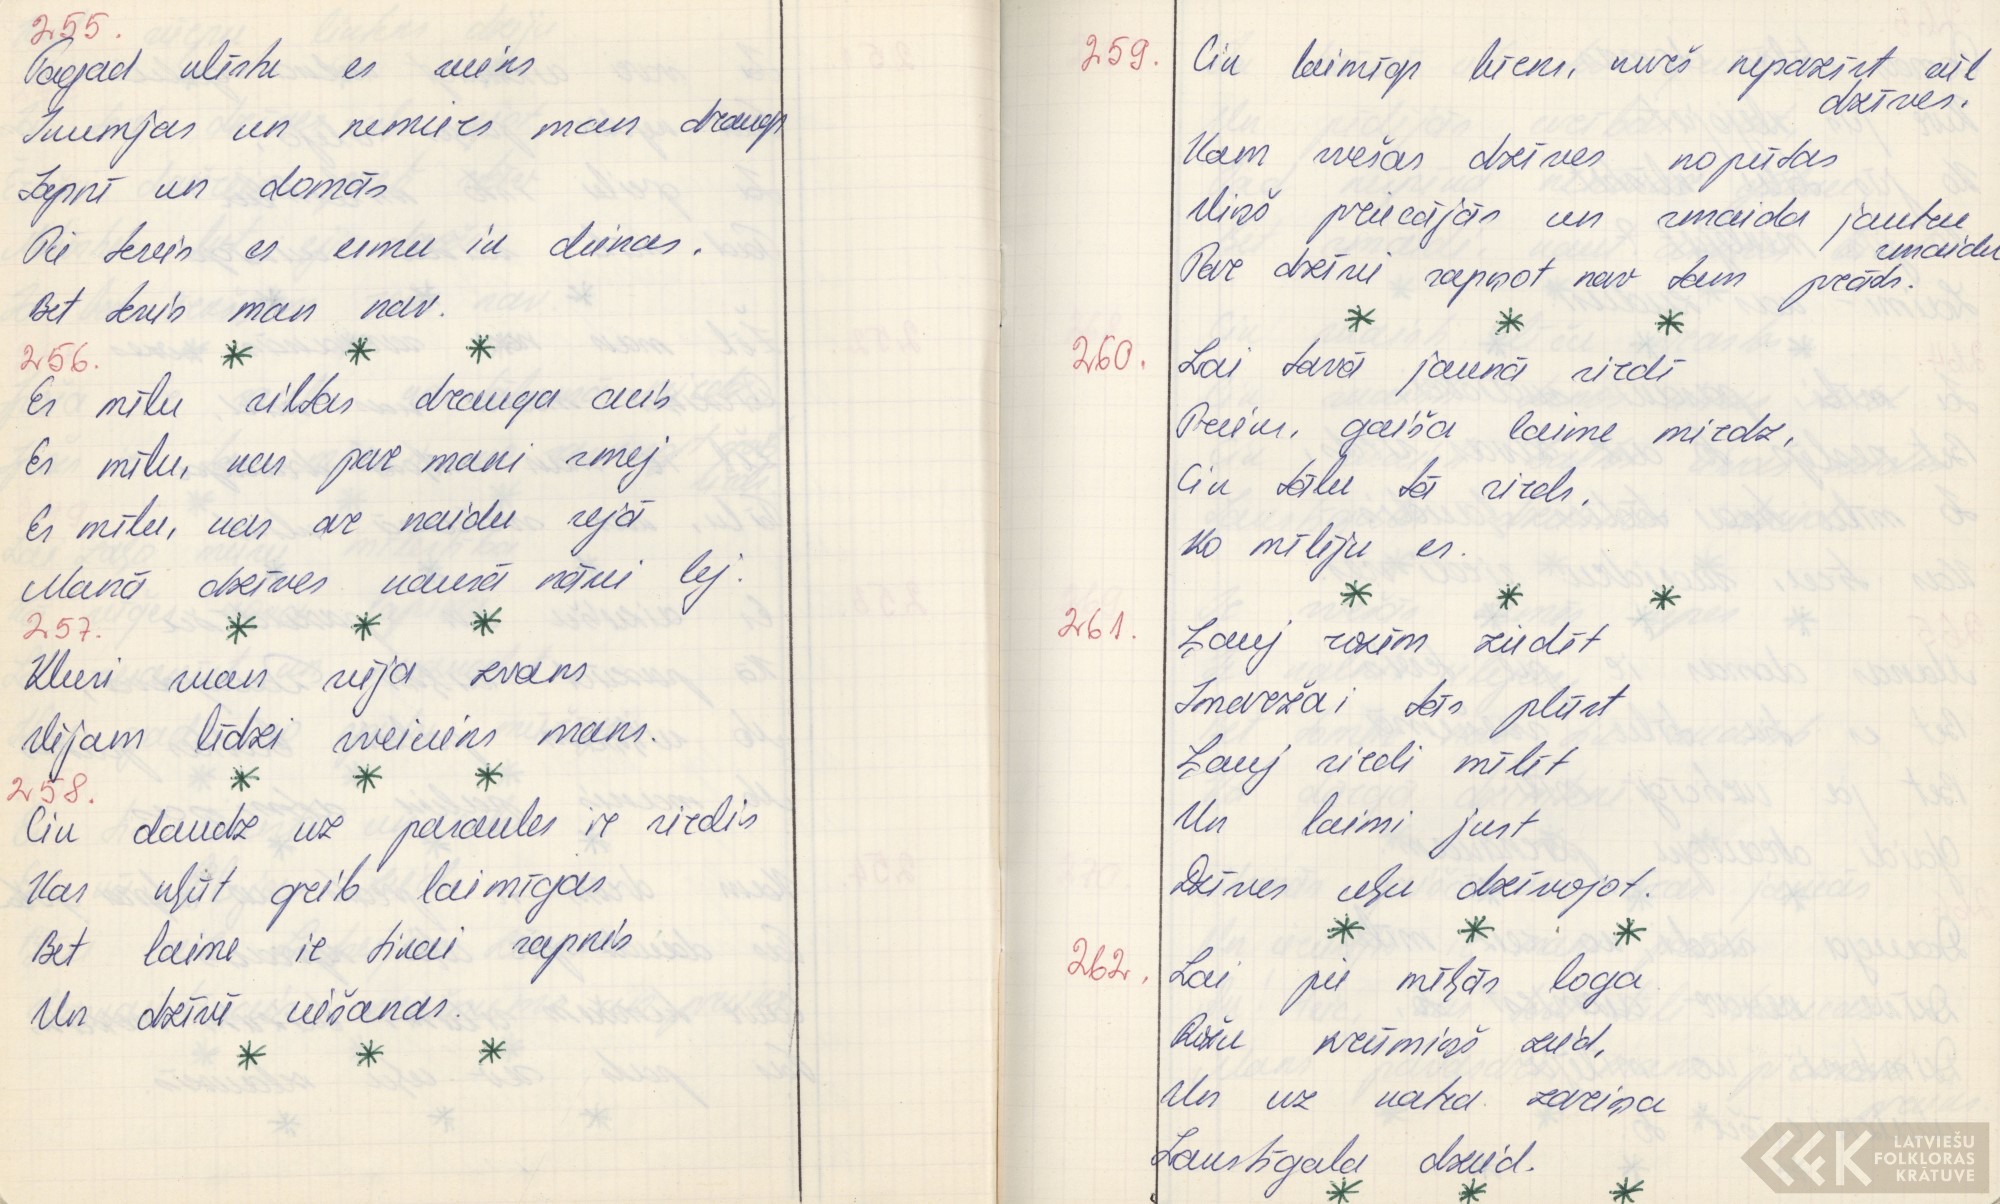 255.
Tagad klīstu es viens
Skumjas un nemiers man draugs
Sapnī un domās
Pie tevis es eimu ik dienas.
Bet tevis man nav.
* * *
256.
Es mīlu siltas drauga acis
Es mīlu, kas par mani smej
Es mīlu, kas ar naidu sejā
Manā dzīves kausā nāvi lej.
* * *
257.
Klusi skan vēja zvans
Vējam līdzi sveiciens mans.
* * *
258.
Cik daudz uz pasaules ir sirdis
Kas kļūt grib laimīgas
Bet laime ir tikai sapnis
Un dzīvē ciešanas.
* * *
259. Cik laimīgs bērns, kurš nepazīst vēl
dzīves.
Kam svešas dzīves nopūtas
Viņš priecājās un smaida jautru
smaidu
Par dzīvi sapņot nav tam prāts.
* * *
260. Lai tavā jaunā sirdī
Prieks, gaiša laime mirdz,
Cik tālu tā sirds,
Ko mīlēju es.
* * *
261. Ļauj rozēm ziedēt
Smaržai tās plūst
Ļauj sirdi mīlēt
Un laimi just
Dzīves ceļu dzīvojot.
* * *
262. Lai pie mīļās loga
Rožu krūmiņš zied,
Un uz katra zariņa
Lakstīgala dzied.
* * *
LATVIEŠU
FOLKLORAS
KRĀTUVE